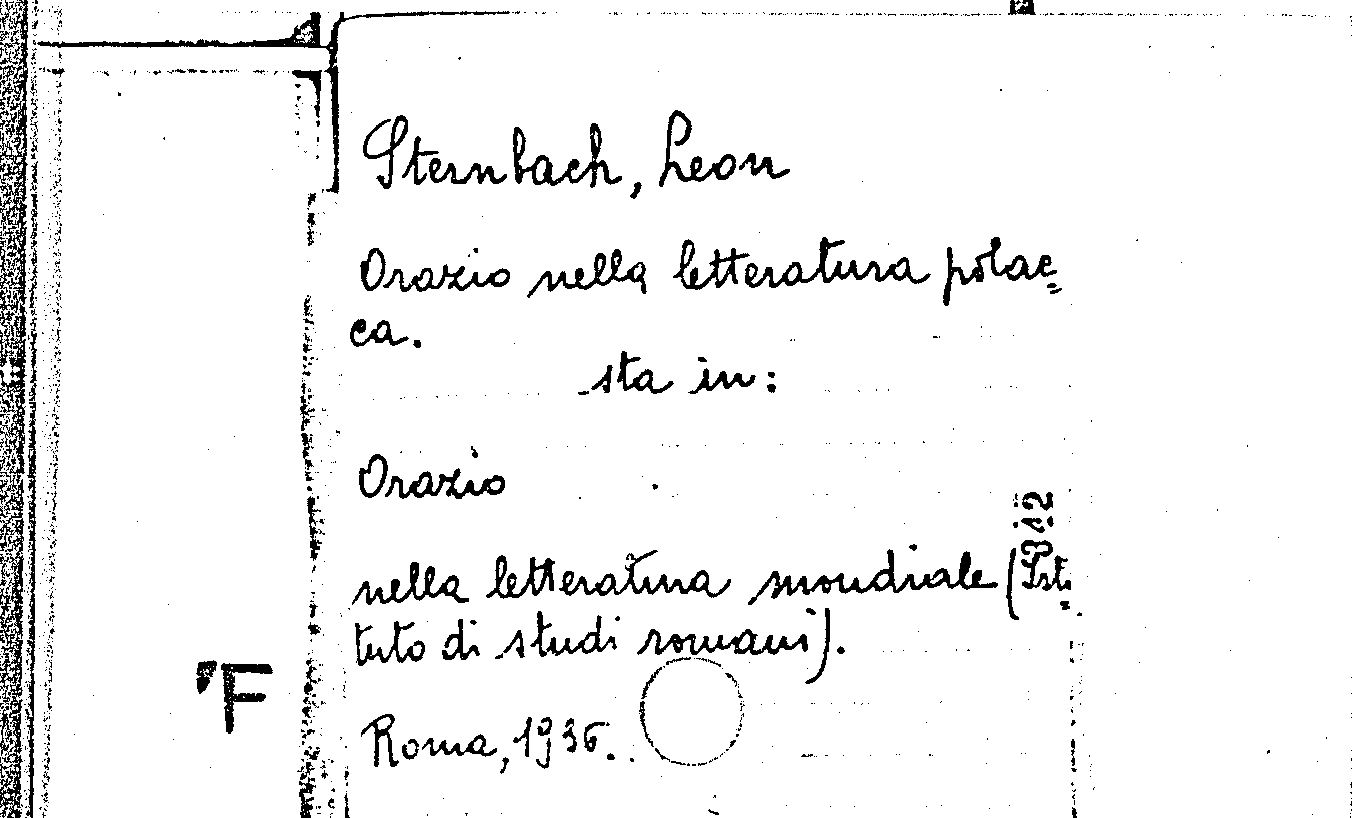 Sternbach, Leon
Orazio nella letteratura polac=
ca.
sta in:
Orazio
nella letteratura mondiale (Isti=
tuto di studi romani).
Roma, 1936.
F